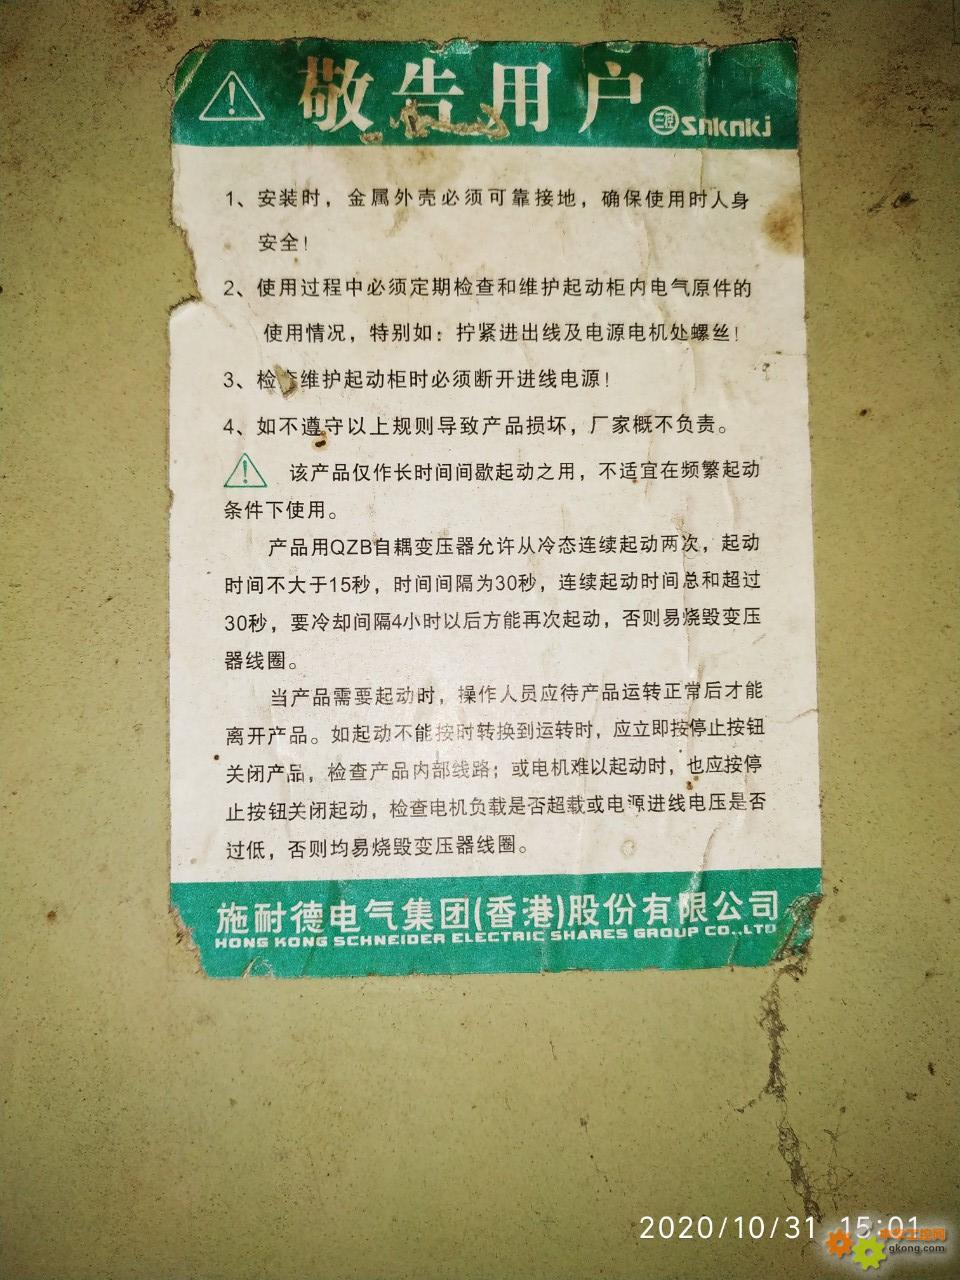 敬告用户
三控 snknkj
1、安装时，金属外壳必须可靠接地，确保使用时人身
安全！
2、使用过程中必须定期检查和维护起动柜内电气原件的
使用情况，特别如：拧紧进出线及电源电机处螺丝！
3、检查维护起动柜时必须断开进线电源！
4、如不遵守以上规则导致产品损坏，厂家概不负责。
该产品仅作长时间间歇起动之用，不适宜在频繁起动
条件下使用。
产品用QZB自耦变压器允许从冷态连续起动两次，起动
时间不大于15秒，时间间隔为30秒，连续起动时间总和超过
30秒，要冷却间隔4小时以后方能再次起动，否则易烧毁变压
器线圈。
当产品需要起动时，操作人员应待产品运转正常后才能
离开产品。如起动不能按时转换到运转时，应立即按停止按钮
关闭产品，检查产品内部线路；或电机难以起动时，也应按停
止按钮关闭起动，检查电机负载是否超载或电源进线电压是否
过低，否则均易烧毁变压器线圈。
施耐德电气集团(香港)股份有限公司
HONG KONG SCHNEIDER ELECTRIC SHARES GROUP CO.,LTD
2020/10/31 15:01
gkong.com